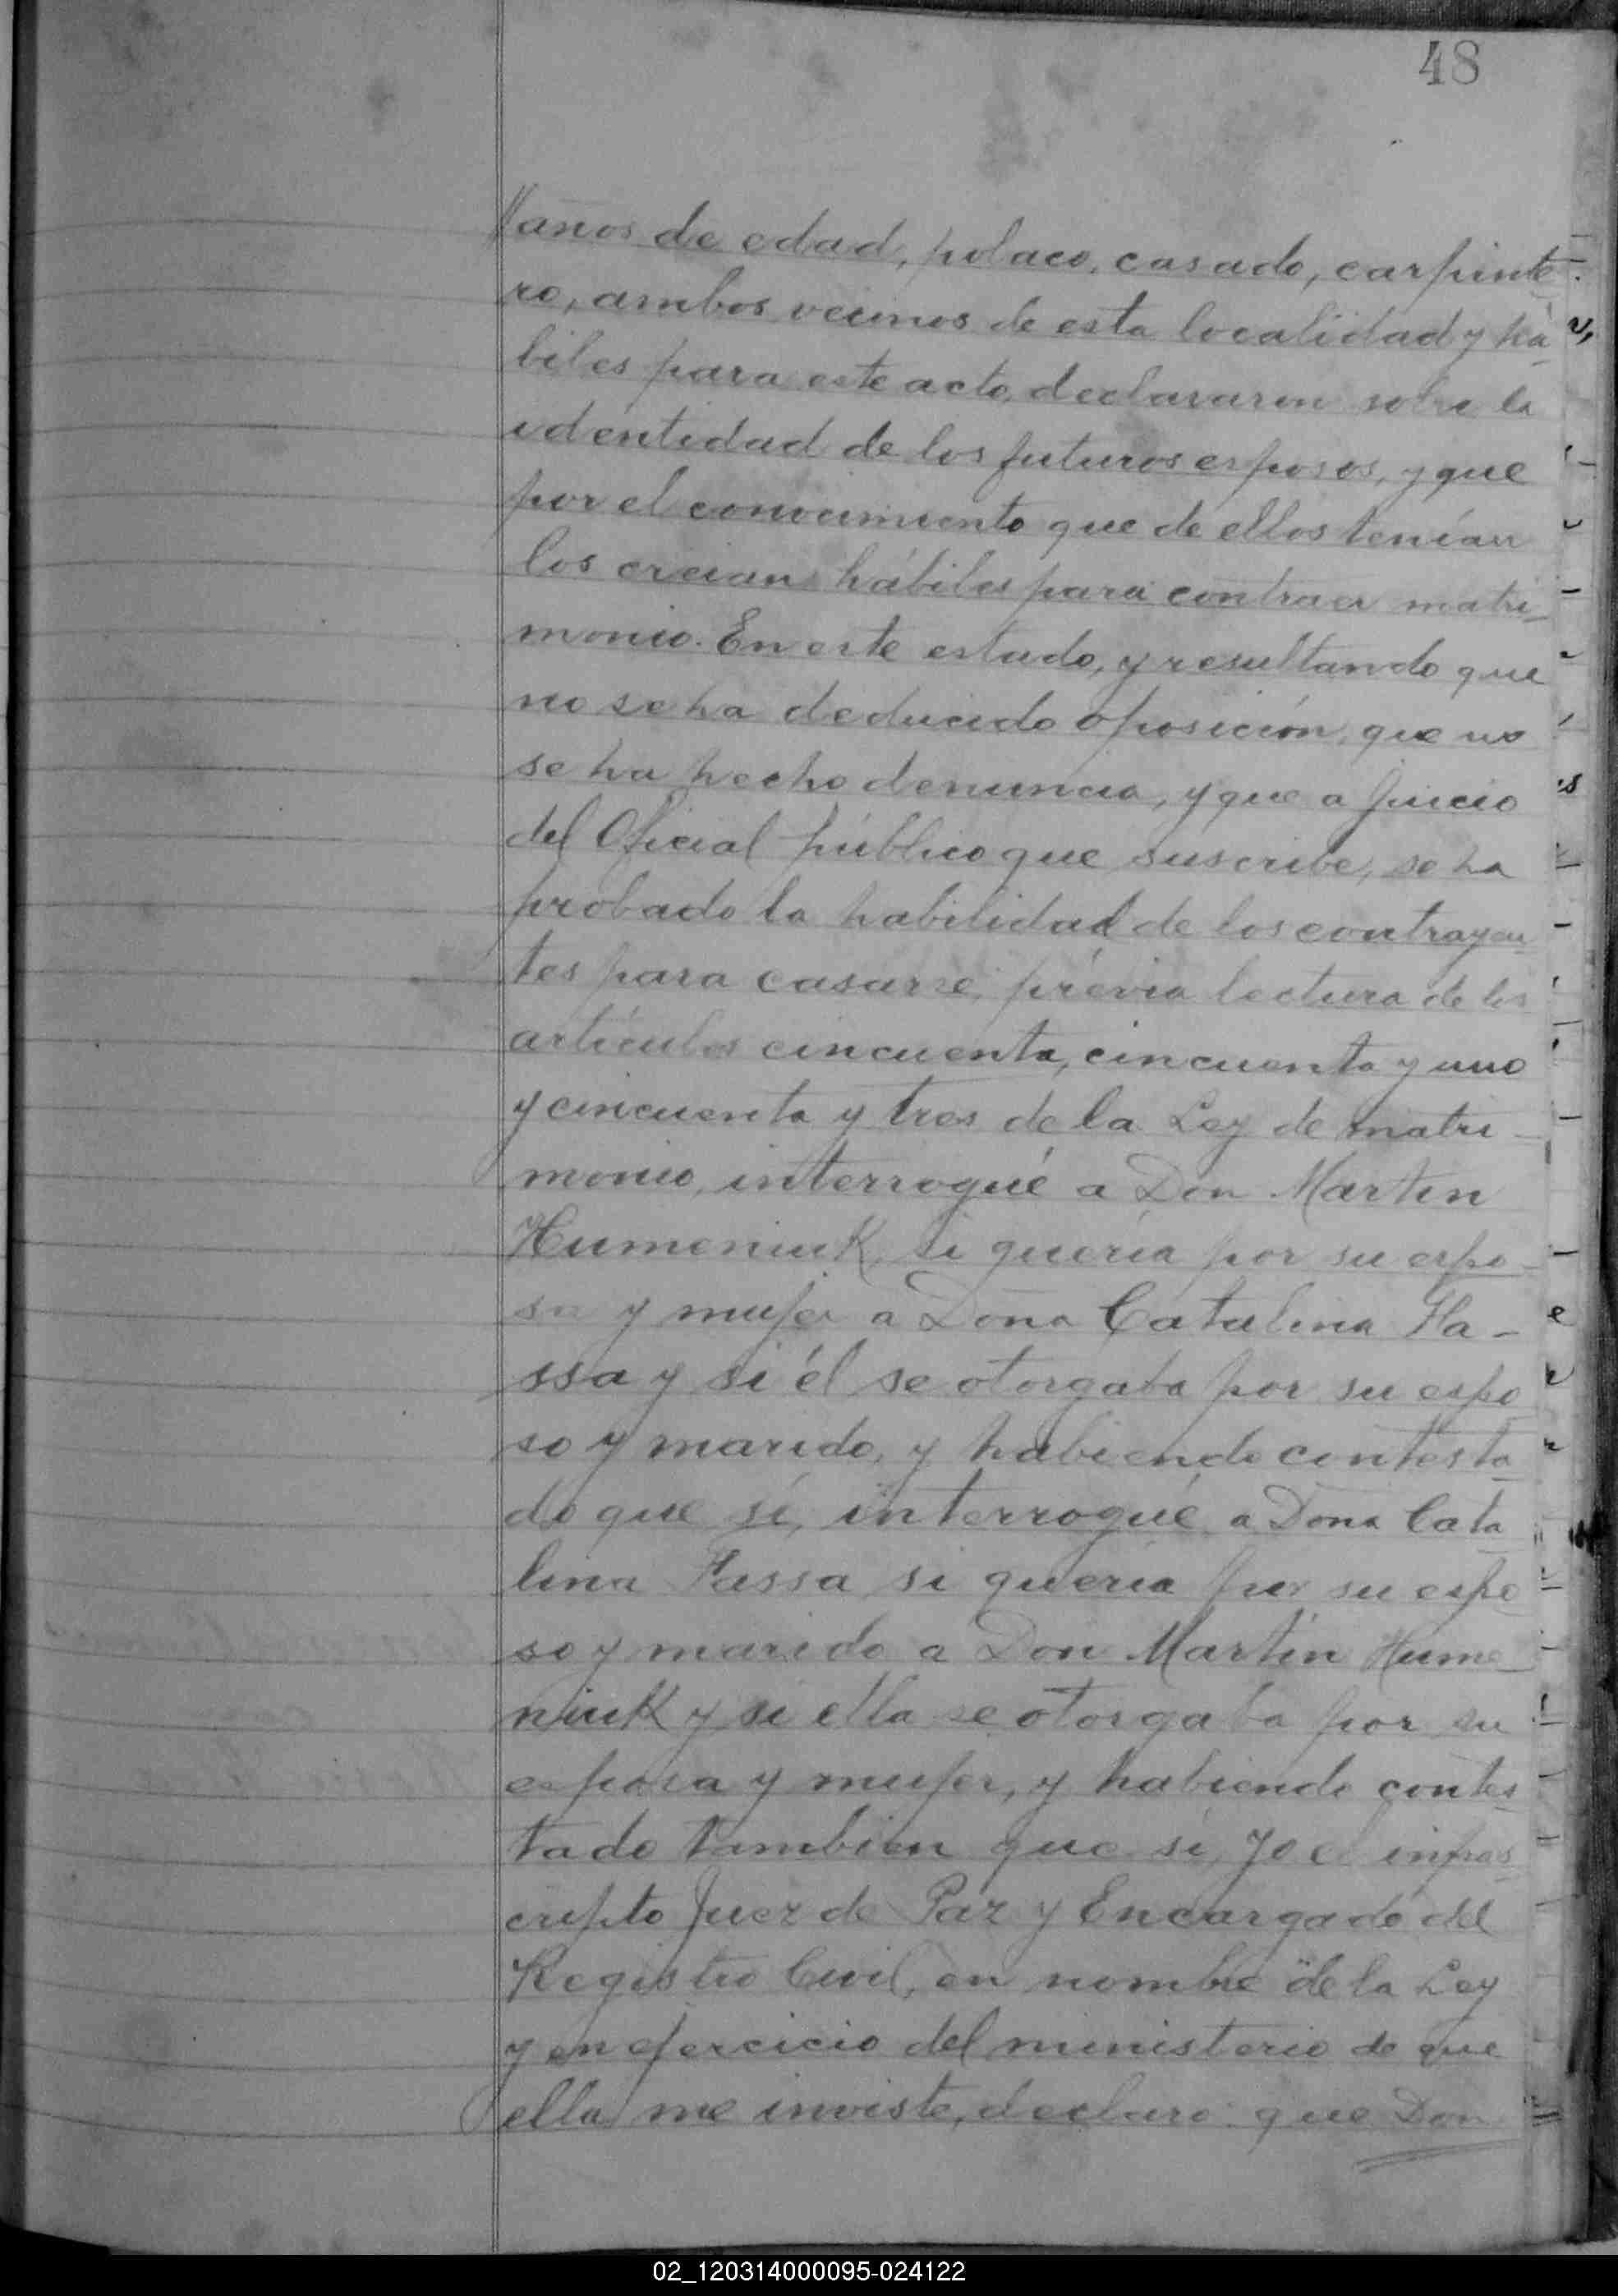 48
//años de edad, polaco, casado, carpinte
ro, ambos vecinos de esta localidad y há
biles para este acto, declararon sobre la
identidad de los futuros esposos, y que
por el conocimiento que de ellos tenían
los creían hábiles para contraer matri-
monio. En este estado, y resultando que
no se ha deducido oposición, que no
se ha hecho denuncia, y que a juicio
del Oficial público que suscribe, se ha
probado la habilidad de los contrayen
tes para casarse, prévia lectura de los
artículos cincuenta, cincuenta y uno
y cincuenta y tres de la Ley de matri-
monio, interrogué a Don Martin
Humeniuk, si quería por su espo-
sa y mujer a Doña Catalina Ha-
ssa y si él se otorgaba por su espo
so y marido, y habiendo contesta-
do que sí, interrogué a Doña Cata
lina Hassa si quería por su espo
so y marido a Don Martín Hume-
niuk y si ella se otorgaba por su
esposa y mujer, y habiendo contes-
tado tambien que sí, Yo el infras-
cripto Juez de Paz y Encargado del
Registro Civil, en nombre de la Ley
y en ejercicio del ministerio de que
ella me inviste, declaro: que Don
02_120314000095-024122